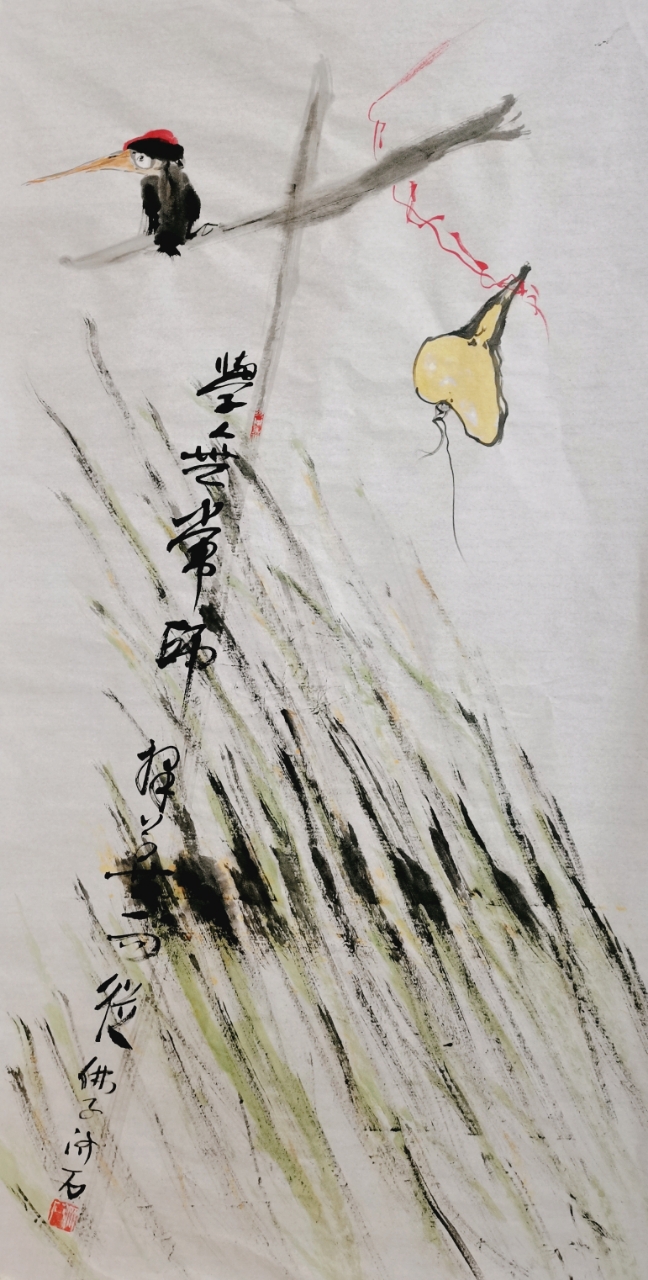 學無常師 擇善而從
佛子 石